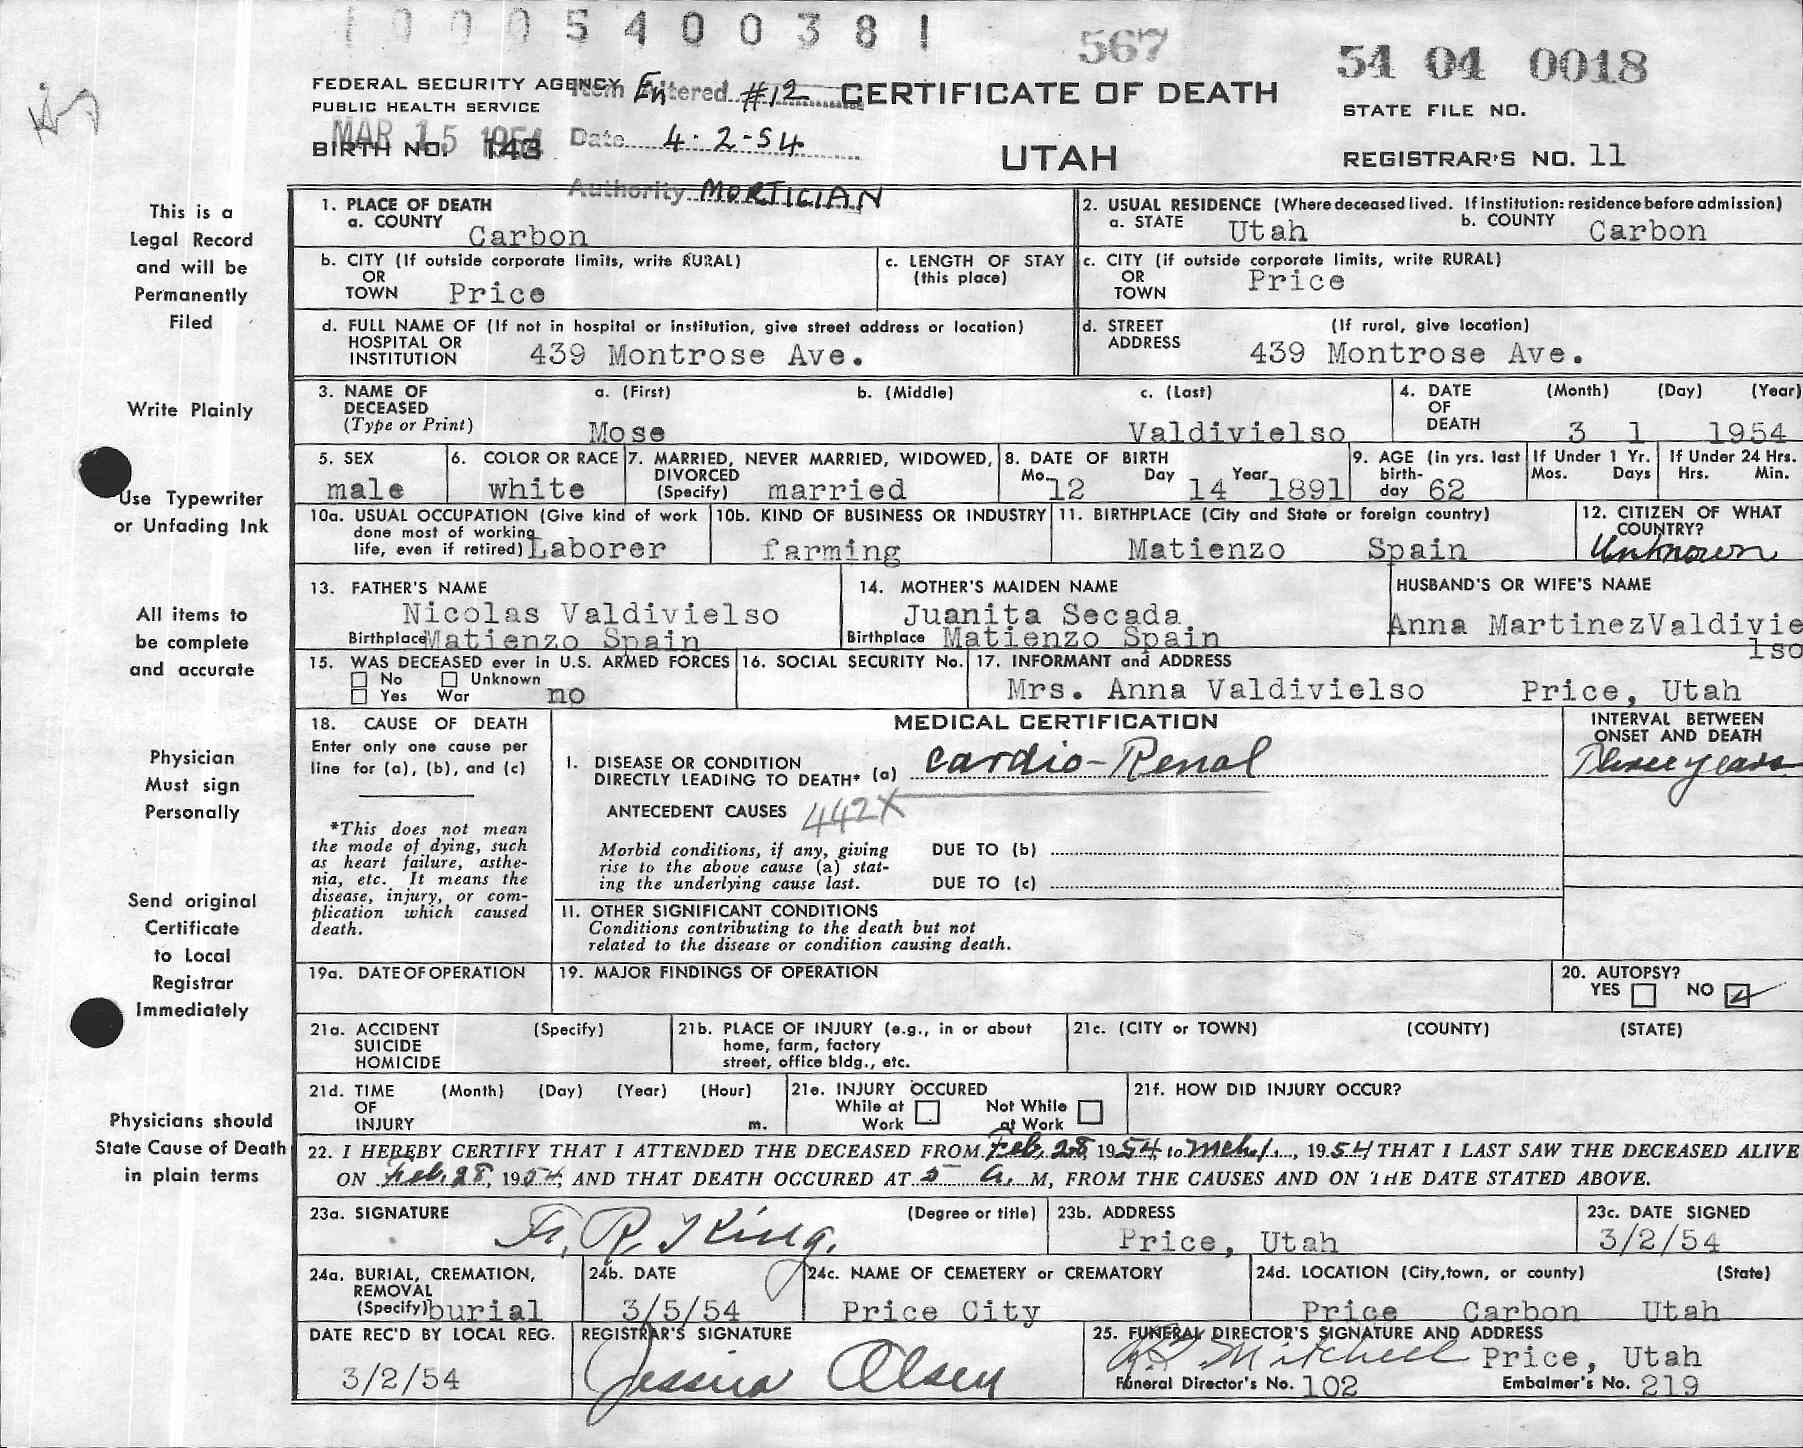 1 0 0 0 5 4 0 0 3 8 1
567
54 04 0018
FEDERAL SECURITY AGENCY
PUBLIC HEALTH SERVICE
Item Entered #12
CERTIFICATE OF DEATH
STATE FILE NO.
MAR 15 1954
BIRTH NO. 143
Date 4-2-54
UTAH
REGISTRAR'S NO. 11
Authority MORTICIAN
This is a
Legal Record
and will be
Permanently
Filed
Write Plainly
Use Typewriter
or Unfading Ink
All items to
be complete
and accurate
Physician
Must sign
Personally
Send original
Certificate
to Local
Registrar
Immediately
Physicians should
State Cause of Death
in plain terms
1. PLACE OF DEATH
a. COUNTY Carbon
2. USUAL RESIDENCE (Where deceased lived. If institution: residence before admission)
a. STATE Utah b. COUNTY Carbon
b. CITY (If outside corporate limits, write RURAL)
OR
TOWN Price
c. LENGTH OF STAY
(this place)
c. CITY (if outside corporate limits, write RURAL)
OR
TOWN Price
d. FULL NAME OF (If not in hospital or institution, give street address or location)
HOSPITAL OR
INSTITUTION 439 Montrose Ave.
d. STREET (If rural, give location)
ADDRESS 439 Montrose Ave.
3. NAME OF a. (First) b. (Middle) c. (Last)
DECEASED
(Type or Print) Mose Valdivielso
4. DATE (Month) (Day) (Year)
OF
DEATH 3 1 1954
5. SEX
male
6. COLOR OR RACE
white
7. MARRIED, NEVER MARRIED, WIDOWED,
DIVORCED
(Specify) married
8. DATE OF BIRTH
Mo. 12 Day 14 Year 1891
9. AGE (in yrs. last
birth-
day 62
If Under 1 Yr.
Mos. Days
If Under 24 Hrs.
Hrs. Min.
10a. USUAL OCCUPATION (Give kind of work
done most of working
life, even if retired) Laborer
10b. KIND OF BUSINESS OR INDUSTRY
farming
11. BIRTHPLACE (City and State or foreign country)
Matienzo Spain
12. CITIZEN OF WHAT
COUNTRY?
Unknown
13. FATHER'S NAME
Nicolas Valdivielso
Birthplace Matienzo Spain
14. MOTHER'S MAIDEN NAME
Juanita Secada
Birthplace Matienzo Spain
HUSBAND'S OR WIFE'S NAME
Anna MartinezValdivie
lso
15. WAS DECEASED ever in U.S. ARMED FORCES
No Unknown
Yes War no
16. SOCIAL SECURITY No.
17. INFORMANT and ADDRESS
Mrs. Anna Valdivielso Price, Utah
18. CAUSE OF DEATH
Enter only one cause per
line for (a), (b), and (c)
*This does not mean
the mode of dying, such
as heart failure, asthe-
nia, etc. It means the
disease, injury, or com-
plication which caused
death.
MEDICAL CERTIFICATION
I. DISEASE OR CONDITION
DIRECTLY LEADING TO DEATH* (a) Cardio-Renal
ANTECEDENT CAUSES 442X
Morbid conditions, if any, giving
rise to the above cause (a) stat-
ing the underlying cause last.
DUE TO (b)
DUE TO (c)
INTERVAL BETWEEN
ONSET AND DEATH
Three years
11. OTHER SIGNIFICANT CONDITIONS
Conditions contributing to the death but not
related to the disease or condition causing death.
19a. DATE OF OPERATION
19. MAJOR FINDINGS OF OPERATION
20. AUTOPSY?
YES NO
21a. ACCIDENT (Specify)
SUICIDE
HOMICIDE
21b. PLACE OF INJURY (e.g., in or about
home, farm, factory
street, office bldg., etc.
21c. (CITY or TOWN) (COUNTY) (STATE)
21d. TIME (Month) (Day) (Year) (Hour)
OF
INJURY m.
21e. INJURY OCCURED
While at Work Not While at Work
21f. HOW DID INJURY OCCUR?
22. I HEREBY CERTIFY THAT I ATTENDED THE DECEASED FROM Feb. 28, 1954 to Mch. 1, 1954 THAT I LAST SAW THE DECEASED ALIVE
ON Feb. 28, 1954, AND THAT DEATH OCCURED AT 5 A. M, FROM THE CAUSES AND ON THE DATE STATED ABOVE.
23a. SIGNATURE (Degree or title)
Fr. R. King.
23b. ADDRESS
Price, Utah
23c. DATE SIGNED
3/2/54
24a. BURIAL, CREMATION,
REMOVAL
(Specify) burial
24b. DATE
3/5/54
24c. NAME OF CEMETERY or CREMATORY
Price City
24d. LOCATION (City, town, or county) (State)
Price Carbon Utah
DATE REC'D BY LOCAL REG.
3/2/54
REGISTRAR'S SIGNATURE
Jessica Olsen
25. FUNERAL DIRECTOR'S SIGNATURE AND ADDRESS
Mitchell Price, Utah
Funeral Director's No. 102 Embalmer's No. 219